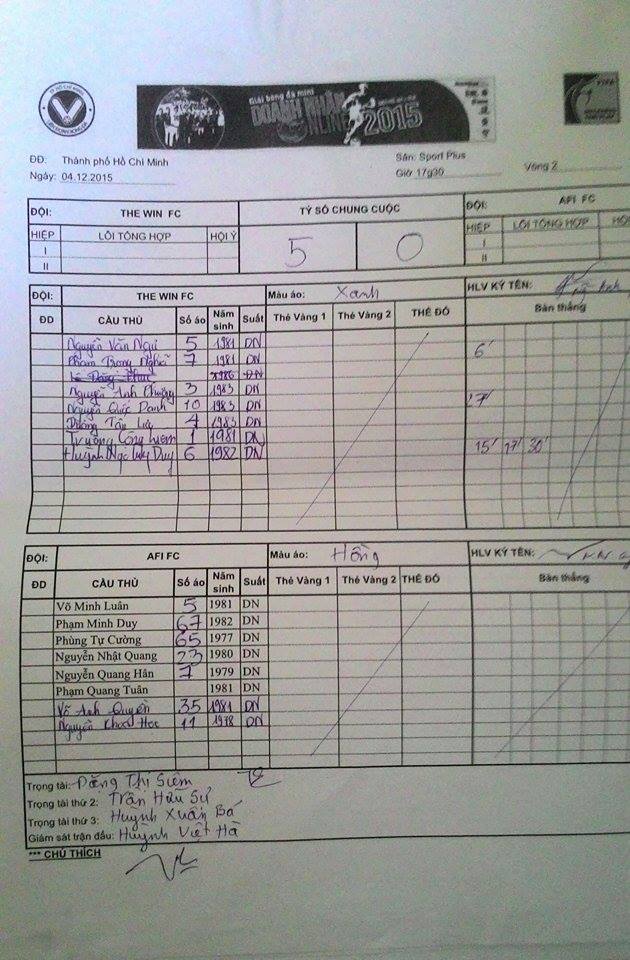 Giải bóng đá mini
DOANH NHÂN
ONLINE 2015
ĐĐ: Thành phố Hồ Chí Minh Sân: Sport Plus Vòng 2
Ngày: 04.12.2015 Giờ 17g30
ĐỘI: THE WIN FC TỶ SỐ CHUNG CUỘC ĐỘI: AFI FC
HIỆP LỖI TỔNG HỢP HỘI Ý 5 0 HIỆP LỖI TỔNG HỢP
I I
II II
ĐỘI: THE WIN FC Màu áo: Xanh HLV KÝ TÊN:
ĐD CẦU THỦ Số áo Năm sinh Suất Thẻ Vàng 1 Thẻ Vàng 2 THẺ ĐỎ Bàn thắng
Nguyễn Văn Ngự 5 1981 DN
Phạm Trọng Nghĩa 7 1981 DN 6'
1986 DN
Nguyễn Anh Phương 3 1983 DN
Nguyễn Quốc Danh 10 1983 DN 27'
Dương Tấn 4 1983 DN
Trương Công 1 1981 DN
Huỳnh Ngọc Duy 6 1982 DN 15' 17' 30'
ĐỘI: AFI FC Màu áo: Hồng HLV KÝ TÊN:
ĐD CẦU THỦ Số áo Năm sinh Suất Thẻ Vàng 1 Thẻ Vàng 2 THẺ ĐỎ Bàn thắng
Võ Minh Luân 5 1981 DN
Phạm Minh Duy 67 1982 DN
Phùng Tự Cường 65 1977 DN
Nguyễn Nhật Quang 23 1980 DN
Nguyễn Quang Hân 7 1979 DN
Phạm Quang Tuân 1981 DN
Võ Anh Quyền 35 1981 DN
Nguyễn Khoa Học 11 1978 DN
Trọng tài: Đặng Thị Siêm
Trọng tài thứ 2: Trần Hữu Sư
Trọng tài thứ 3: Huỳnh Xuân Bá
Giám sát trận đấu: Huỳnh Việt Hà
*** CHÚ THÍCH